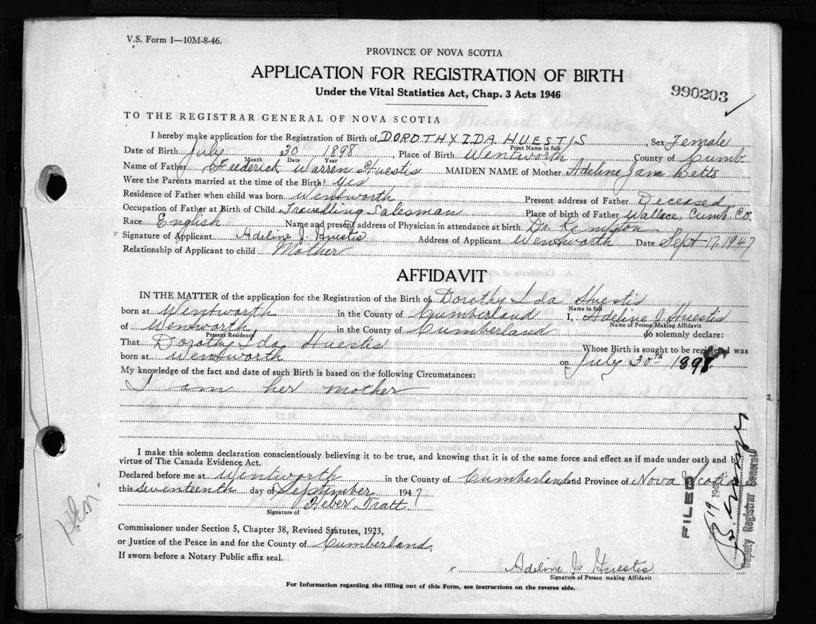 V.S. Form 1—10M-8-46.
PROVINCE OF NOVA SCOTIA
APPLICATION FOR REGISTRATION OF BIRTH
Under the Vital Statistics Act, Chap. 3 Acts 1946
990203
TO THE REGISTRAR GENERAL OF NOVA SCOTIA
I hereby make application for the Registration of Birth of DOROTHY IDA HUESTIS, Sex Female
Print Name in full
Date of Birth July 30 1898, Place of Birth Wentworth County of Cumb.
Month Date Year
Name of Father Frederick Warren Huestis MAIDEN NAME of Mother Adeline Jane Betts
Were the Parents married at the time of the Birth? yes
Residence of Father when child was born Wentworth Present address of Father Deceased
Occupation of Father at Birth of Child Travelling Salesman Place of birth of Father Wallace, Cumb. Co.
Race English Name and present address of Physician in attendance at birth Dr. Kempton
Signature of Applicant Adeline J. Huestis Address of Applicant Wentworth Date Sept 17, 1947
Relationship of Applicant to child Mother
AFFIDAVIT
IN THE MATTER of the application for the Registration of the Birth of Dorothy Ida Huestis
Name in full
born at Wentworth in the County of Cumberland I, Adeline J. Huestis
Name of Person Making Affidavit
of Wentworth in the County of Cumberland do solemnly declare:
Present Residence
That Dorothy Ida Huestis Whose Birth is sought to be registered was
born at Wentworth on July 30th 1898
My knowledge of the fact and date of such Birth is based on the following Circumstances:
I am her mother
I make this solemn declaration conscientiously believing it to be true, and knowing that it is of the same force and effect as if made under oath and by
virtue of The Canada Evidence Act.
Declared before me at Wentworth in the County of Cumberland and Province of Nova Scotia
this seventeenth day of September 1947
Signature of Heber Tratt
Commissioner under Section 5, Chapter 38, Revised Statutes, 1923,
or Justice of the Peace in and for the County of Cumberland
If sworn before a Notary Public affix seal.
x Adeline J. Huestis
Signature of Person making Affidavit
For Information regarding the filling out of this Form, see instructions on the reverse side.
FILED
19 194
Deputy Registrar General